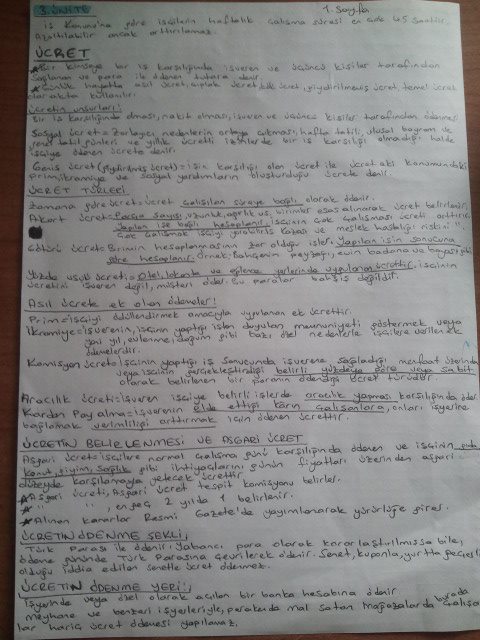 3. ÜNİTE
1. Sayfa
İş Konunu'na göre işçilerin haftalık çalışma süresi en çok 45 saattir.
Azaltılabilir ancak arttırılamaz.
ÜCRET
* Bir kimseye bir iş karşılığında işveren ve üçüncü kişiler tarafından
sağlanan ve para ile ödenen tutara denir.
* Günlük hayatta asıl ücret, çıplak ücret, kök ücret, giydirilmemiş ücret, temel ücret
olarakta kullanılır.
Ücretin unsurları:
Bir iş karşılığında olması, nakit olması, işveren ve üçüncü kişiler tarafından ödenmesi
Sosyal ücret = Zorlayıcı nedenlerin ortaya çıkması, hafta tatili, ulusal bayram ve
genel tatil günleri ve yıllık ücretli izinlerde bir iş karşılığı olmadığı halde
işçiye ödenen ücrete denir.
Geniş ücret (giydirilmiş ücret) = işin karşılığı olan ücret ile ücret eki konumundaki
prim, ikramiye ve sosyal yardımların oluşturduğu ücrete denir.
ÜCRET TÜRLERİ
Zamana göre ücret = Ücret çalışılan süreye bağlı olarak ödenir.
Akort ücret = Parça sayısı, uzunluk, ağırlık vs. birimler esas alınarak ücret belirlenir,
Yapılan işe bağlı hesaplanır, işçinin çok çalışması ücreti arttırır.
Çok çalışmak işçi yorgunluk kazası ve meslek hastalığı riskini
Götürü ücret: Birimin hesaplanmasının zor olduğu işler, Yapılan işin sonucuna
göre hesaplanır. Örnek: Bahçenin peyzajı, evin badana ve boyası gibi
Yüzde usulü ücreti = Otel, lokanta ve eğlence yerlerinde uygulanan ücrettir. İşçinin
ücretini işveren değil, müşteri öder. Bu paralar bahşiş değildir.
Asıl ücrete ek olan ödemeler!
Prim = işçiyi ödüllendirmek amacıyla uygulanan ek ücrettir.
İkramiye = işverenin, işçinin yaptığı işten duyulan memnuniyeti göstermek veya
yeni yıl, evlenme, doğum gibi bazı özel nedenlerle işçilere verilen ek
ödemelerdir.
Komisyon ücreti = işçinin yaptığı iş sonucunda işverene sağladığı menfaat üzerinden
veya işçinin gerçekleştirdiği belirli yüzdeye göre veya sabit
olarak belirlenen bir paranın ödendiği ücret türüdür.
Aracılık ücreti = işveren işçiye belirli işlerde aracılık yapması karşılığında öder.
Kârdan Pay alma = işverenin elde ettiği karın çalışanlara, onları işyerine
bağlamak verimliliği arttırmak için ödenen ücrettir.
ÜCRETİN BELİRLENMESİ VE ASGARİ ÜCRET
Asgari ücret = işçilere normal çalışma günü karşılığında ödenen ve işçinin gıda
konut, giyim, sağlık gibi ihtiyaçlarını günün fiyatları üzerinden asgari
düzeyde karşılamaya yetecek ücrettir.
* Asgari ücreti, Asgari ücret tespit komisyonu belirler.
* " ", en geç 2 yılda 1 belirlenir.
* Alınan kararlar Resmi Gazete'de yayımlanarak yürürlüğe girer.
ÜCRETİN ÖDENME ŞEKLİ;
Türk Parası ile ödenir. Yabancı para olarak kararlaştırılmışsa bile,
ödeme gününde Türk Parasına çevrilerek ödenir. Senet, kuponla, yurtta geçerli
olduğu iddia edilen senetle ücret ödenmez.
ÜCRETİN ÖDENME YERİ:
İşyerinde veya özel olarak açılan bir banka hesabına ödenir
meyhane ve benzeri işyerleriyle, perakende mal satan mağazalarda burada çalışan
lar hariç ücret ödemesi yapılamaz.